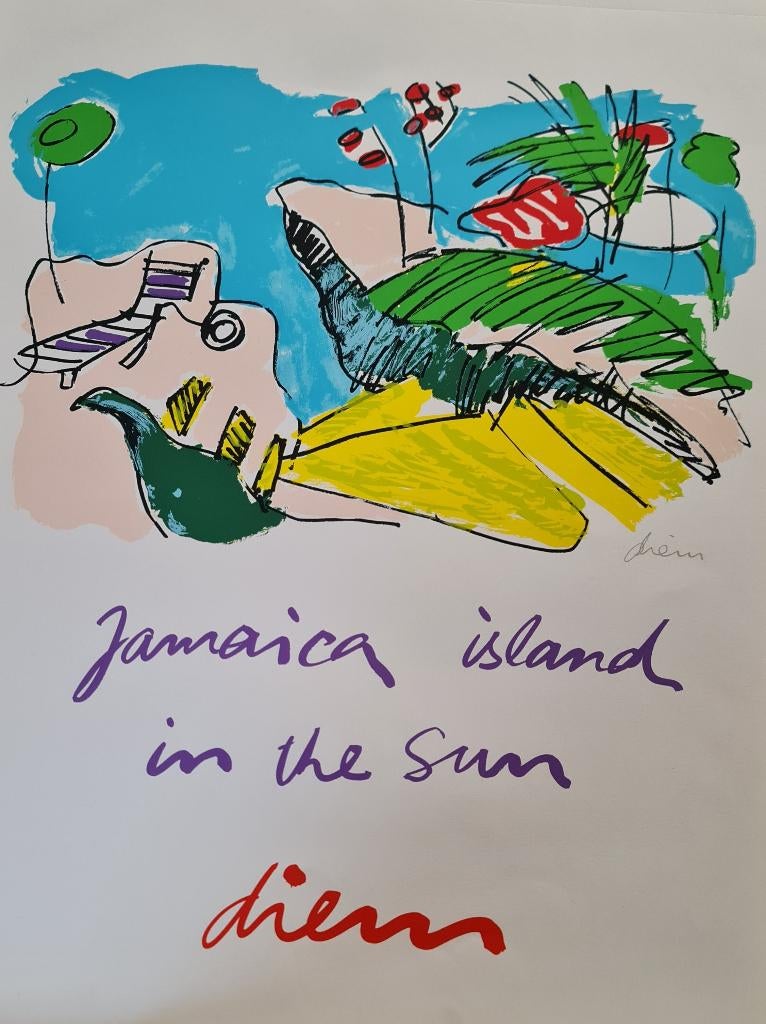 diem
Jamaica island
in the sun
diem